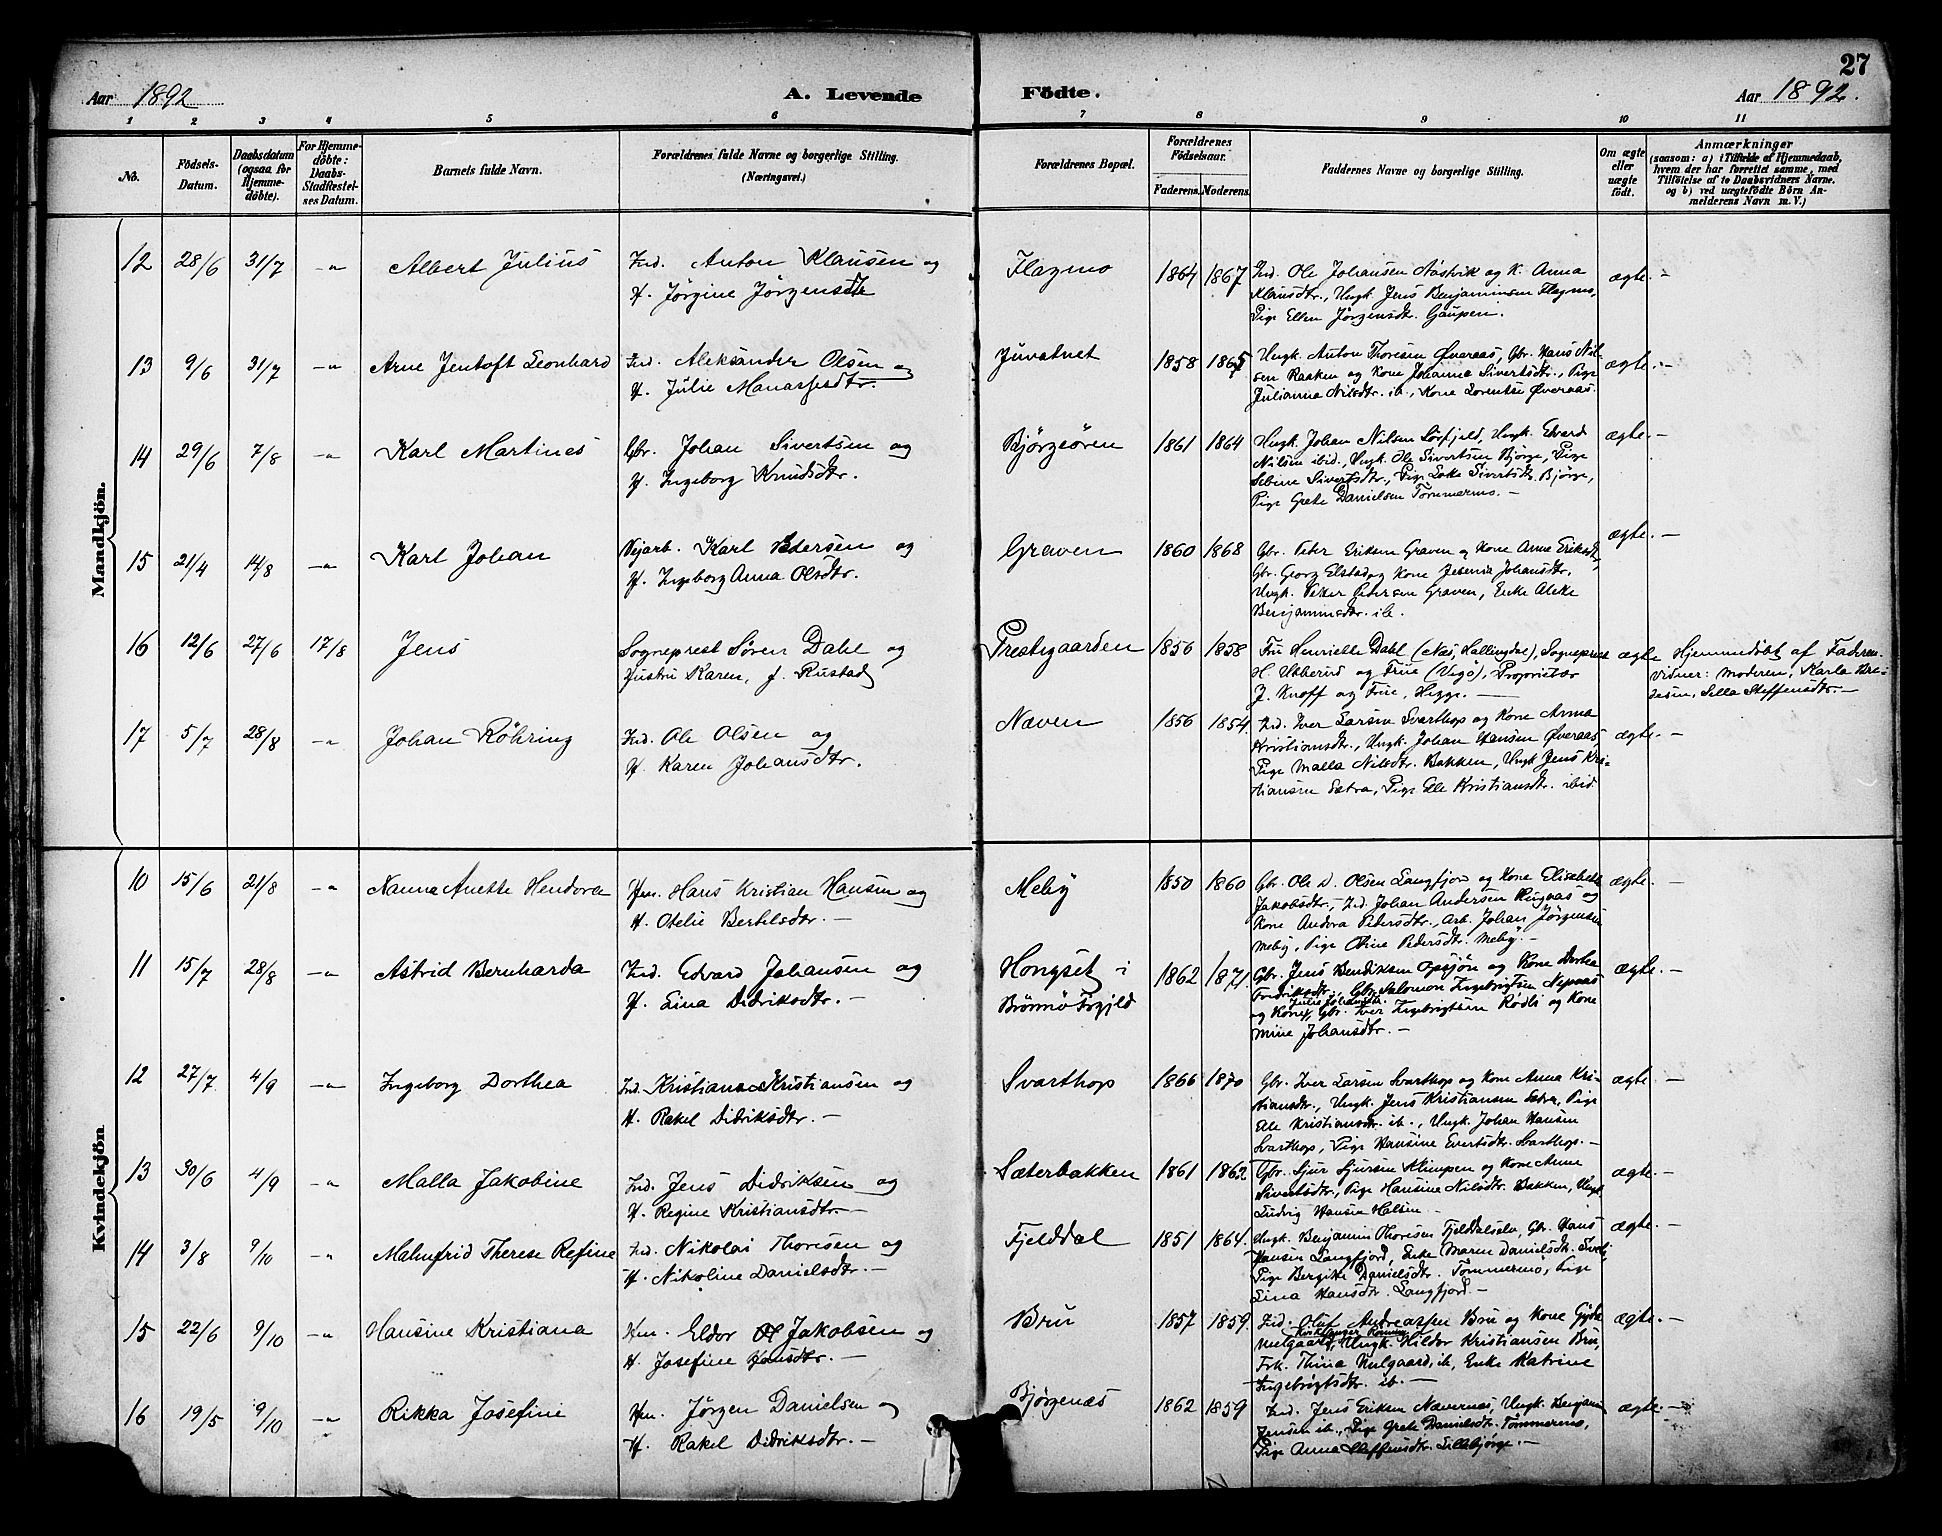 27
Aar 1892
A. Levende Födte.
Aar 1892.
1 2 3 4 5 6 7 8 9 10 11
No.
Födsels-Datum.
Daabsdatum (ogsaa for Hjemme-döbte).
For Hjemme-döbte: Daabs-Stadfæstel-ses Datum.
Barnets fulde Navn.
Forældrenes fulde Navne og borgerlige Stilling.
(Næringsvei.)
Forældrenes Bopæl.
Forældrenes Födselsaar.
Faderens. Moderens.
Faddernes Navne og borgerlige Stilling.
Om ægte eller uægte födt.
Anmærkninger
(saasom: a) i Tilfælde af Hjemmedaab,
hvem der har forrettet samme, med
Tilföielse af to Daabsvidners Navne.
og b) ved uægtefödte Börn An-
melderens Navn m. V.)
Mandkjön.
12 28/6 31/7 -"- Albert Julius
Ind. Anton Klausen og
H. Jörgine Jörgensdtr
Flagmo 1864 1867
Ind. Ole Johansen Aasvik og K. Anna
Klausdtr., Ungk. Jens Benjaminsen Flagmo,
Pige Ellen Jörgensdtr. Gaupen.
ægte. -
13 9/6 31/7 -"- Arne Jentoft Leonhard
Ind. Aleksander Olsen og
H. Julie Manassedtr.
Juvatnet 1858 1865
Ungk. Anton Thoresen Øveraas, Gbr. Hans Nil-
sen Baaken og Kone Johanna Sivertsdtr., Pige
Julianna Nilsdtr. ib., Kone Lorentse Øveraas.
ægte. -
14 29/6 7/8 -"- Karl Martines
Gbr. Johan Sivertsen og
H. Ingeborg Knudsdtr.
Bjørgeören 1861 1864
Ungk. Johan Nilsen Sörfjeld, Ungk. Edvard
Nilsen ibid., Ungk. Ole Sivertsen Bjørge, Pige
Sebine Sivertsdtr., Pige Lake Sivertsdtr. Bjørge,
Pige Grete Danielsen Tømmermo. -
ægte. -
15 21/4 14/8 -"- Karl Johan
Vejarb. Karl Pedersen og
H. Ingeborg Anna Olsdtr.
Graven 1860 1868
Gbr. Peter Eriksen Graven og Kone Anne Eriksdtr,
Gbr. Georg Elstad og Kone Johansdtr.
Ungk. Peter Petersen Graven, Enke Aleke
Benjaminsdtr. ib.
ægte. -
16 12/6 27/6 17/8 Jens
Sogneprest Sören Dahl og
Hustru Karen, f. Rustad
Prestegaarden 1856 1858
Fru Henriette Dahl (Næs, Hallingdal), Sogneprest
H. Ubberud og Frue (Vegö), Proprietær
J. Knoff og Frue, Hegge. -
ægte
Hjemmedöbt af Faderen.
Vidner: Moderen, Karla
Sella Steffensdtr. -
17 5/7 28/8 -"- Johan Röhring
Ind. Ole Olsen og
H. Karen Johansdtr.
Næven 1856 1854
Ind. Iver Larsen Svarthop og Kone Anna
Kristiansdtr., Ungk. Johan Hansen Øveraas,
Pige Malla Nilsdtr. Bakken, Ungk Jens Kri-
stiansen Sætra, Pige Ele Kristiansdtr. ibid.
ægte. -
Kvindekjön
10 15/6 21/8 -"- Nanna Anette Hendora
Hm. Hans Kristian Hansen og
H. Otelie Bertelsdtr. -
Meby 1850 1860
Gbr. Ole D. Olsen Langfjord og Kone Elisabeth
Jakobsdtr., Ind. Johan Andersen Ringvas og
Kone Andora Pedersdtr., Arb. Johan Jörgensen
Meby, Pige Otine Pedersdtr. Meby. -
ægte. -
11 15/7 28/8 -"- Astrid Bernharda
Ind. Edvard Johansen og
H. Lina Didriksdtr. -
Hongset i
Brönnö Prgjld 1862 1871
Gbr. Jens Bendiksen Opsjön og Kone Dorthea
Fredriksdtr., Gbr. Salomon Ingebrigtsen Nepaas
og Kone Julie Johansdtr., Gbr. Iver Ingebrigtsen Rödli og Kone
Mine Johansdtr. -
ægte. -
12 27/7 4/9 -"- Ingeborg Dorthea
Ind. Kristian Kristiansen og
H. Rakel Didriksdtr. -
Svarthop 1866 1870
Gbr. Iver Larsen Svarthop og Kone Anna Kri-
stiansdtr., Ungk. Jens Kristiansen Sætra, Pige
Ele Kristiansdtr. ib., Ungk. Johan Hansen
Svarthop, Pige Hansine Evertsdtr. Svarthop. -
ægte. -
13 30/6 4/9 -"- Malla Jakobine
Ind. Jens Didriksen og
H. Regine Kristiansdtr. -
Sæterbakken 1861 1862
Gbr. Sjur Sjursen Klimpen og Kone Anne
Sivertsdtr., Pige Hansine Nilsdtr. Bakken, Ungk
Ludvig Hansen Holsen. -
ægte. -
14 3/8 9/10 -"- Malmfrid Therese Refine
Ind. Nikolai Thoresen og
H. Nikoline Danielsdtr. -
Fjelddal 1851 1864.
Ungk. Benjamin Thoresen Fjelddalselv, Gbr. Hans
Hansen Langfjord, Enke Maren Danielsdtr.
Pige Bergitte Danielsdtr. Tømmermo, Pige
Lina Hansdtr. Langfjord. -
ægte. -
15 22/6 9/10 -"- Hansine Kristiana
Hm. Eldor Jakobsen og
H. Josefine Hansdtr. -
Bru 1857 1859
Ind. Oluf Andreassen Bru og Kone Gyda
Hulgaard, Ungk. Hildor Kristiansen Bru,
Frk. Thina Hulgaard, ib., Enke Katrine
Ingebrigtsdtr. ib. -
ægte. -
16 19/5 9/10 -"- Rikka Josefine
Hm. Jörgen Danielsen og
H. Rakel Didriksdtr. -
Bjørgenæs 1862 1859
Ind. Jens Eriksen Nævernes, Ungk. Benjamin
Jensen ib., Pige Grete Danielsdtr. Tømmermo,
Pige Anna Steffensdtr. Lillebjørge. -
ægte. -